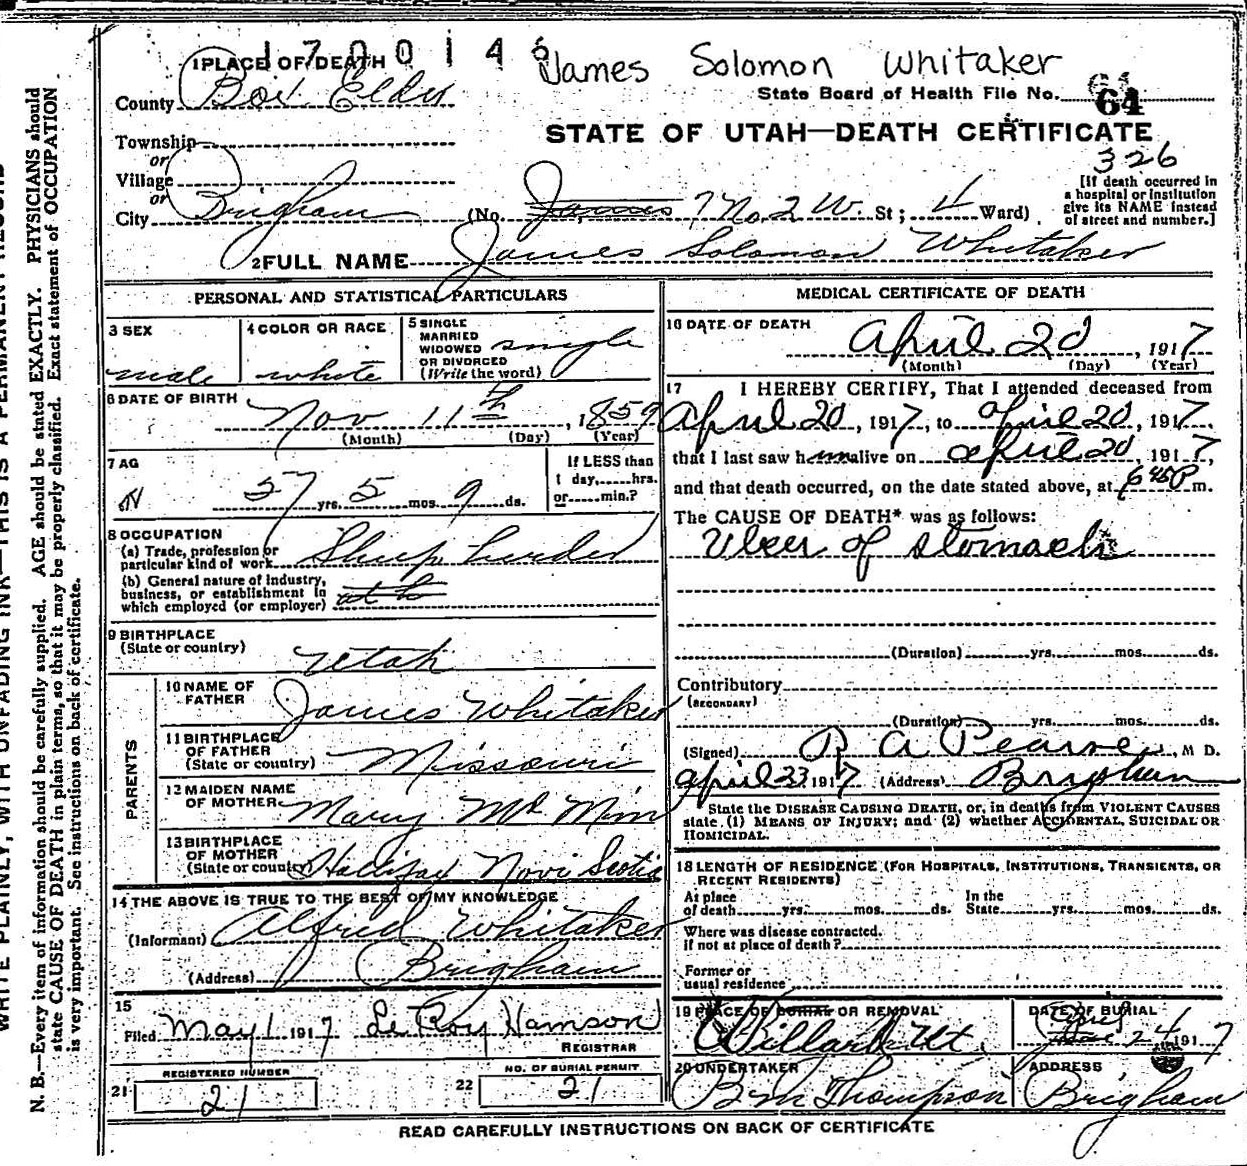 1700146
James Solomon Whitaker
1 PLACE OF DEATH
County Box Elder
State Board of Health File No. 64
STATE OF UTAH—DEATH CERTIFICATE
326
Township
or
Village
or
City Brigham (No. James 7 No. 2 W. St; 4 Ward)
[If death occurred in
a hospital or institution
give its NAME instead
of street and number.]
2 FULL NAME James Solomon Whitaker
PERSONAL AND STATISTICAL PARTICULARS
3 SEX
male
4 COLOR OR RACE
white
5 SINGLE
MARRIED
WIDOWED
OR DIVORCED
(Write the word)
single
6 DATE OF BIRTH
Nov 11th, 1859
(Month) (Day) (Year)
7 AG
57 yrs. 5 mos. 9 ds.
If LESS than
1 day, hrs.
or min.?
8 OCCUPATION
(a) Trade, profession or
particular kind of work Sheep herder
(b) General nature of industry,
business, or establishment in
which employed (or employer)
9 BIRTHPLACE
(State or country)
Utah
PARENTS
10 NAME OF
FATHER
James Whitaker
11 BIRTHPLACE
OF FATHER
(State or country)
Missouri
12 MAIDEN NAME
OF MOTHER
Mary Mc Minn
13 BIRTHPLACE
OF MOTHER
(State or country)
Hallifax Novi Scotia
14 THE ABOVE IS TRUE TO THE BEST OF MY KNOWLEDGE
(Informant) Alfred Whitaker
(Address) Brigham
15
Filed May 1 1917 Le Roy Hamson
REGISTRAR
21 REGISTERED NUMBER
21
22 NO. OF BURIAL PERMIT
21
MEDICAL CERTIFICATE OF DEATH
16 DATE OF DEATH
April 20, 1917
(Month) (Day) (Year)
17 I HEREBY CERTIFY, That I attended deceased from
April 20, 1917, to April 20, 1917,
that I last saw him alive on April 20, 1917,
and that death occurred, on the date stated above, at m.
The CAUSE OF DEATH* was as follows:
Ulcer of stomach
(Duration) yrs. mos. ds.
Contributory
(SECONDARY)
(Duration) yrs. mos. ds.
(Signed) R A Pearse, M D.
April 23 1917 (Address) Brigham
State the DISEASE CAUSING DEATH, or, in deaths from VIOLENT CAUSES
state (1) MEANS OF INJURY; and (2) whether ACCIDENTAL, SUICIDAL OR
HOMICIDAL.
18 LENGTH OF RESIDENCE (FOR HOSPITALS, INSTITUTIONS, TRANSIENTS, OR
RECENT RESIDENTS)
At place
of death yrs. mos. ds.
In the
State yrs. mos. ds.
Where was disease contracted,
if not at place of death?
Former or
usual residence
19 PLACE OF BURIAL OR REMOVAL
Willard Ut.
DATE OF BURIAL
24 1917
20 UNDERTAKER
B M Thompson
ADDRESS
Brigham
READ CAREFULLY INSTRUCTIONS ON BACK OF CERTIFICATE
WRITE PLAINLY, WITH UNFADING INK—THIS IS A PERMANENT RECORD
N. B.—Every item of information should be carefully supplied. AGE should be stated EXACTLY. PHYSICIANS should
state CAUSE OF DEATH in plain terms, so that it may be properly classified. Exact statement of OCCUPATION
is very important. See instructions on back of certificate.